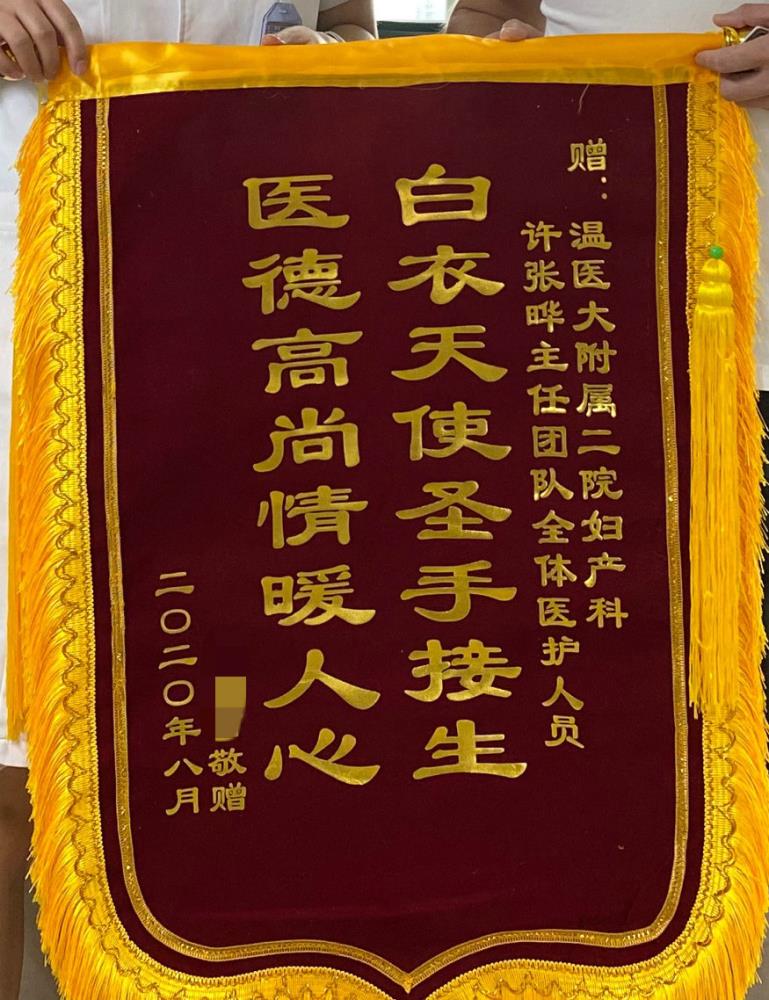 赠：温医大附属二院妇产科
许张晔主任团队全体医护人员
白衣天使圣手接生
医德高尚情暖人心
敬赠
二〇二〇年八月